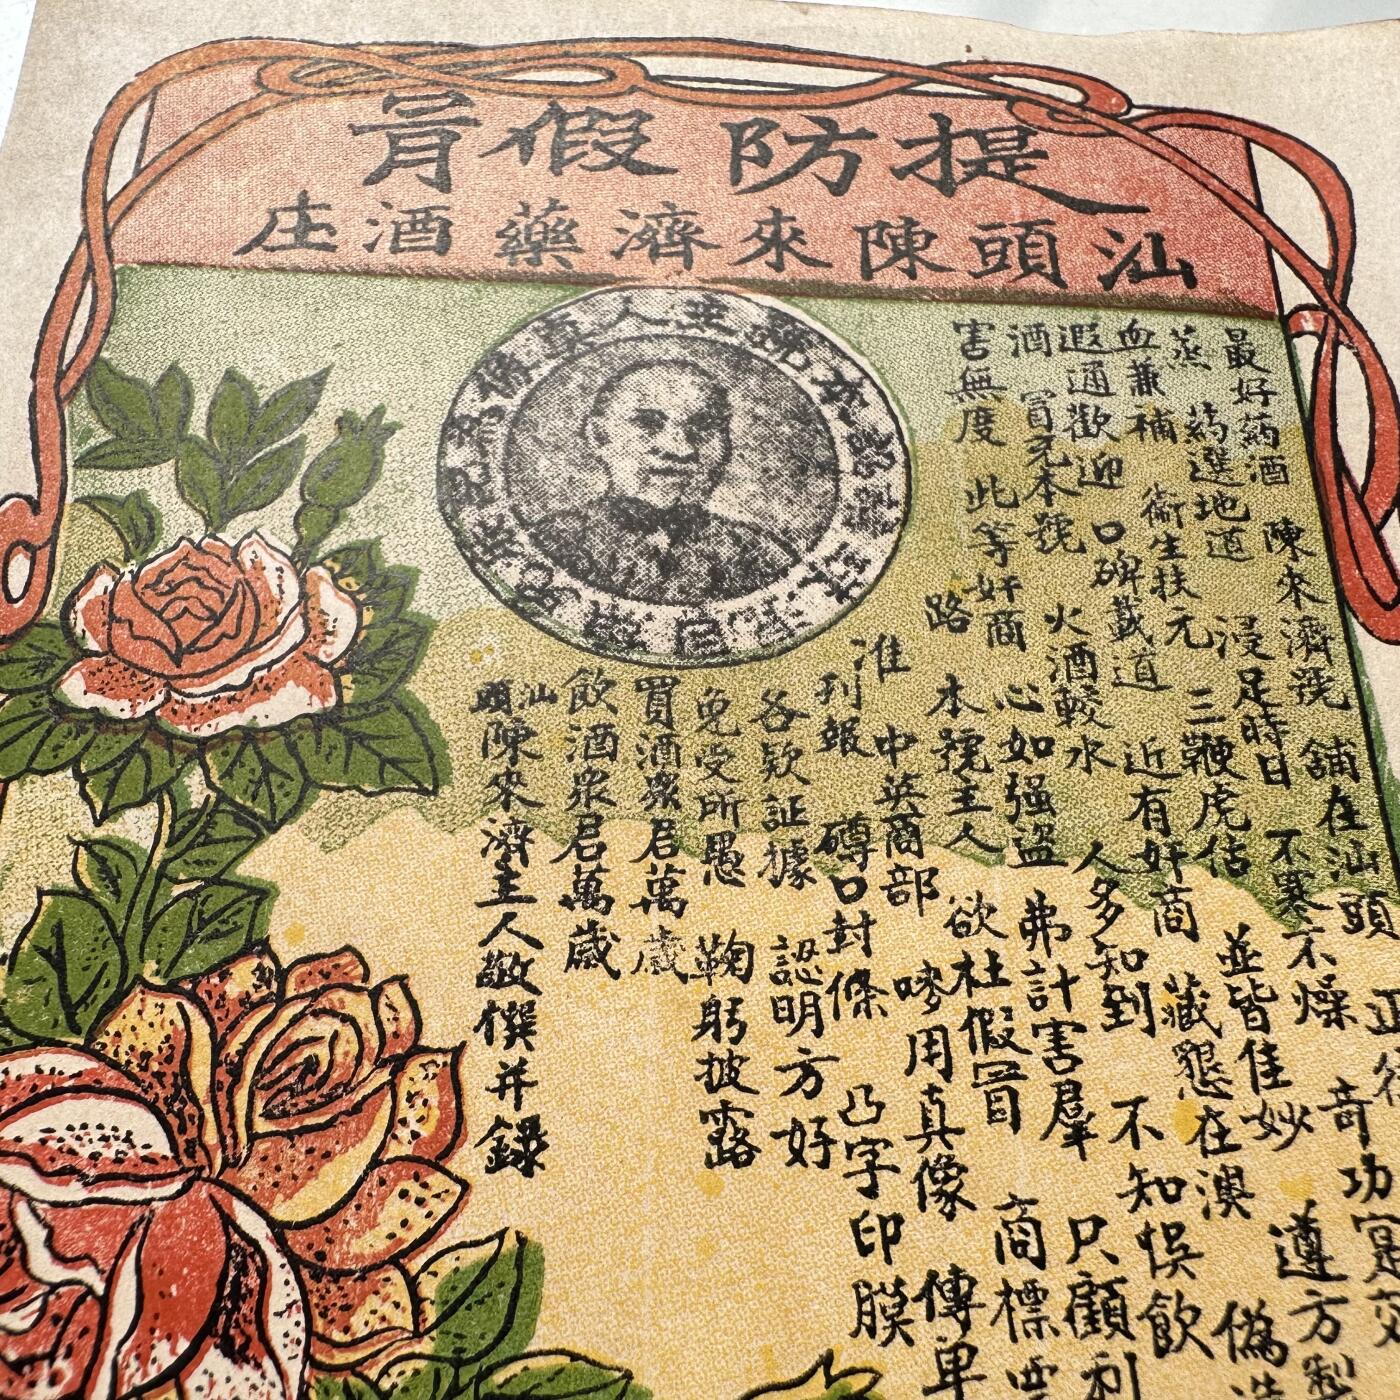 提防假冐
汕頭陳來濟藥酒庄
最好药酒 陳來濟號 舖在汕頭 正
蒸 药選地道 浸足時日 不寒不燥 奇功寔效
血兼補 衛生扶元 三鞭虎估 並皆佳妙 遵方製
遐通歡迎 口碑載道 近有奸商 藏懇在澳 偽造
酒 冐充本號 火酒較水 人多知到 不知悮飲
害無度 此等奸商 心如强盗 弗計害羣 只顧利
路 本號主人 欲杜假冐 商標
准 中英商部 嘜用真像 傳单
刊報 磚口封條 凸字印膜
各欵証據 認明方好
免受所愚 鞠躬披露
買酒衆君萬歲
飲酒衆君萬歲
汕頭陳來濟主人敬撰并録